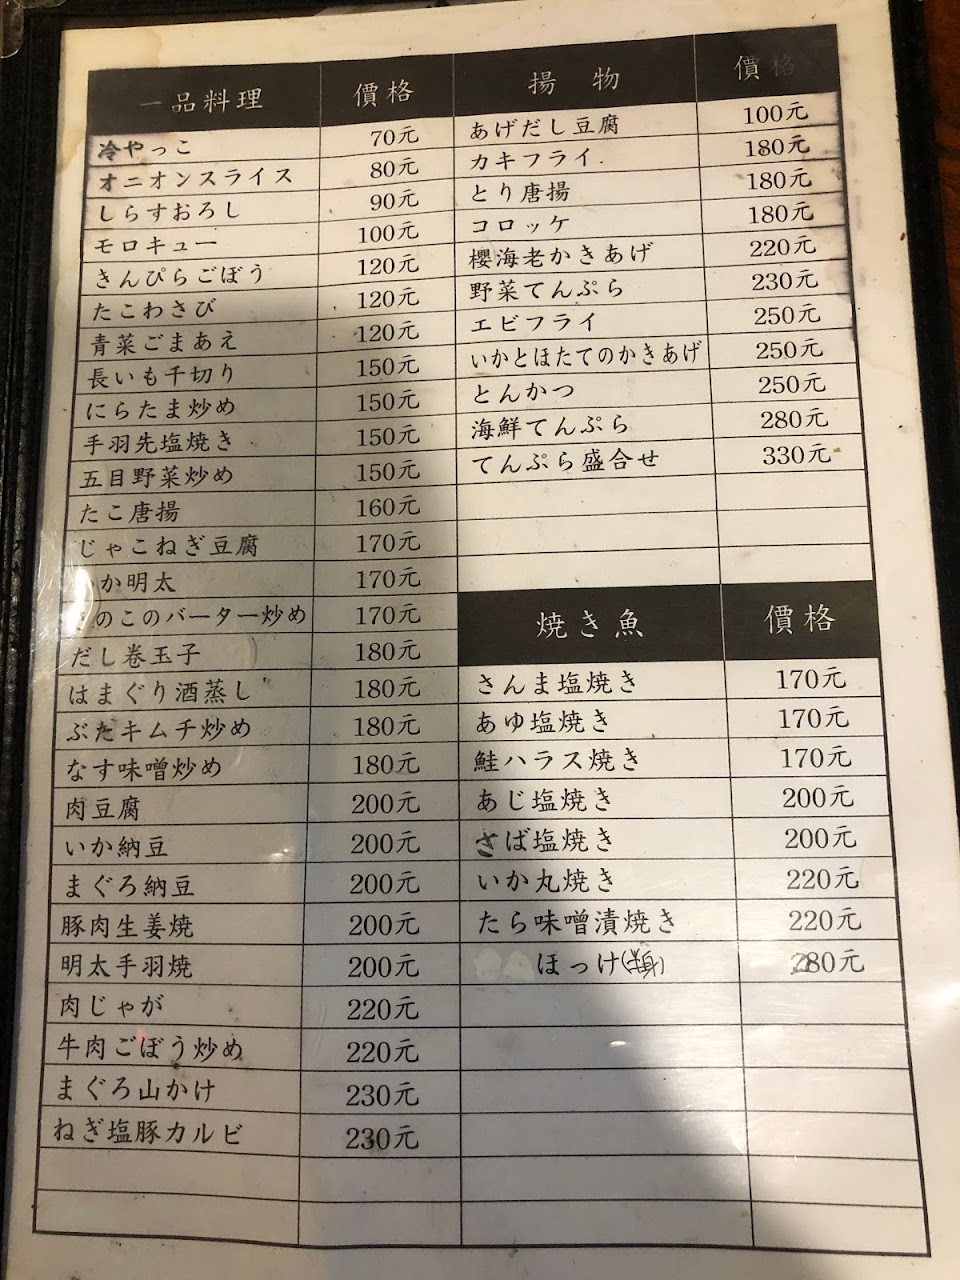 一品料理 價格
冷やっこ 70元
オニオンスライス 80元
しらすおろし 90元
モロキュー 100元
きんぴらごぼう 120元
たこわさび 120元
青菜ごまあえ 120元
長いも千切り 150元
にらたま炒め 150元
手羽先塩焼き 150元
五目野菜炒め 150元
たこ唐揚 160元
じゃこねぎ豆腐 170元
か明太 170元
のこのバーター炒め 170元
だし卷玉子 180元
はまぐり酒蒸し 180元
ぶたキムチ炒め 180元
なす味噌炒め 180元
肉豆腐 200元
いか納豆 200元
まぐろ納豆 200元
豚肉生姜焼 200元
明太手羽焼 200元
肉じゃが 220元
牛肉ごぼう炒め 220元
まぐろ山かけ 230元
ねぎ塩豚カルビ 230元
揚物 價格
あげだし豆腐 100元
カキフライ 180元
とり唐揚 180元
コロッケ 180元
櫻海老かきあげ 220元
野菜てんぷら 230元
エビフライ 250元
いかとほたてのかきあげ 250元
とんかつ 250元
海鮮てんぷら 280元
てんぷら盛合せ 330元
焼き魚 價格
さんま塩焼き 170元
あゆ塩焼き 170元
鮭ハラス焼き 170元
あじ塩焼き 200元
さば塩焼き 200元
いか丸焼き 220元
たら味噌漬焼き 220元
ほっけ 280元